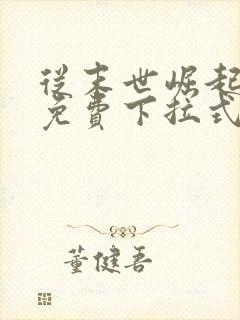 從末世崛起
免費下拉式
董健吾